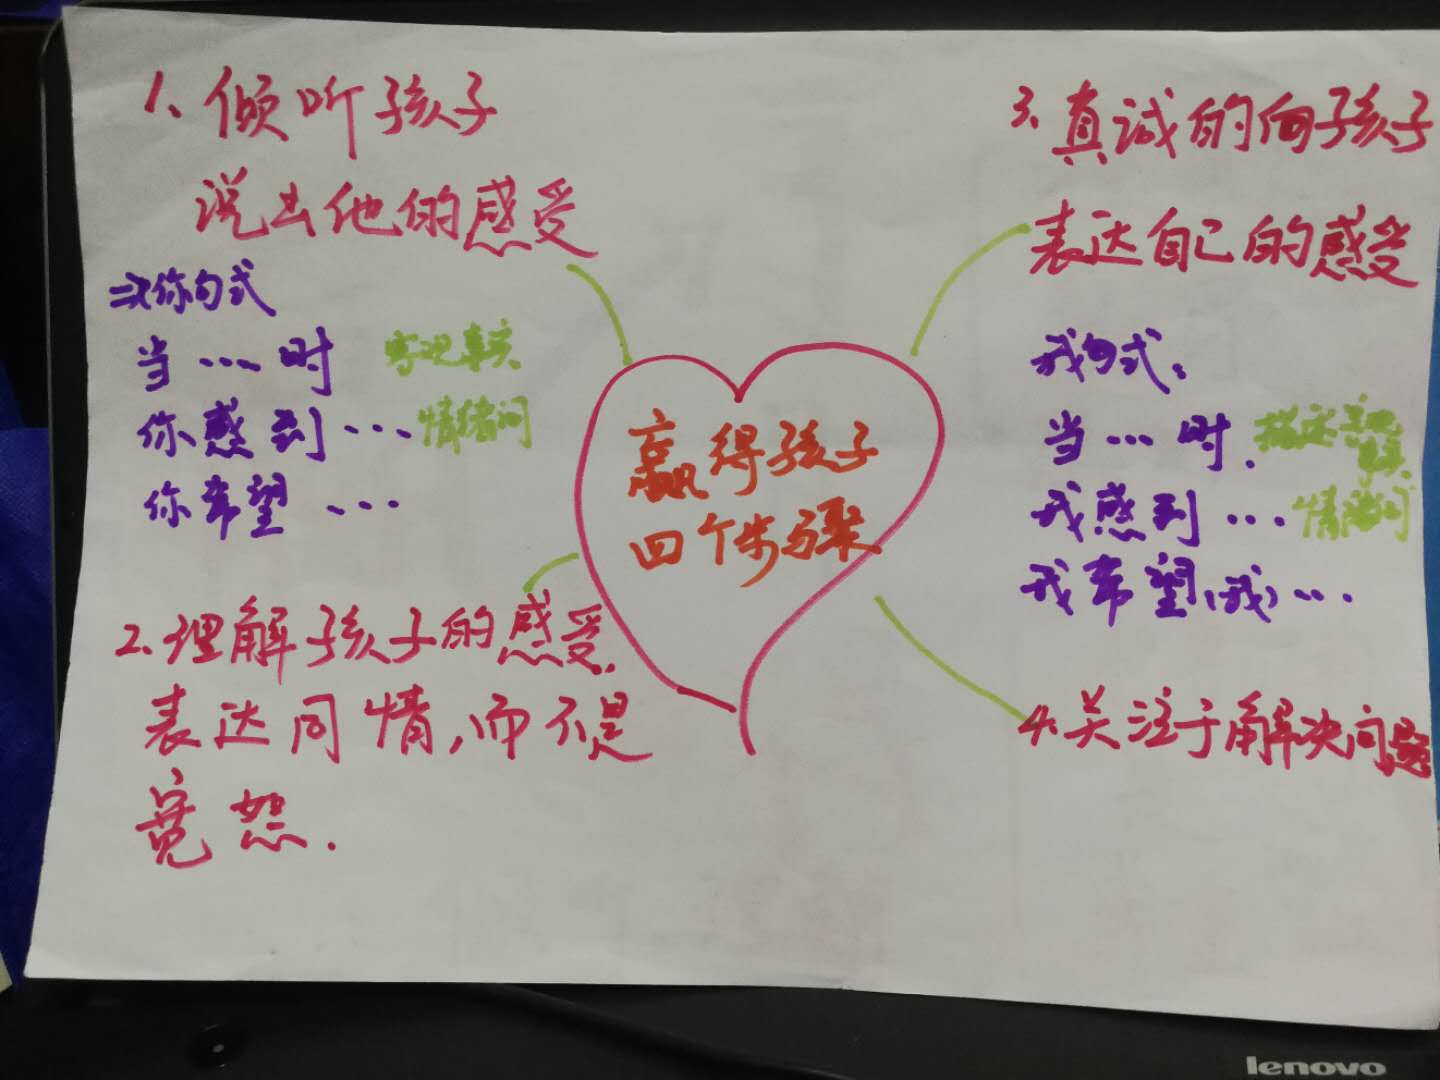 1、倾听孩子
说出他的感受
三次你句式
当…时 客观事实
你感到…情绪词
你希望…
2.理解孩子的感受.
表达同情,而不是
宽恕.
赢得孩子
四个步骤
3、真诚的向孩子
表达自己的感受
我句式:
当…时.描述客观
事实.
我感到…情绪词
我希望(我)…
4.关注于解决问题
lenovo